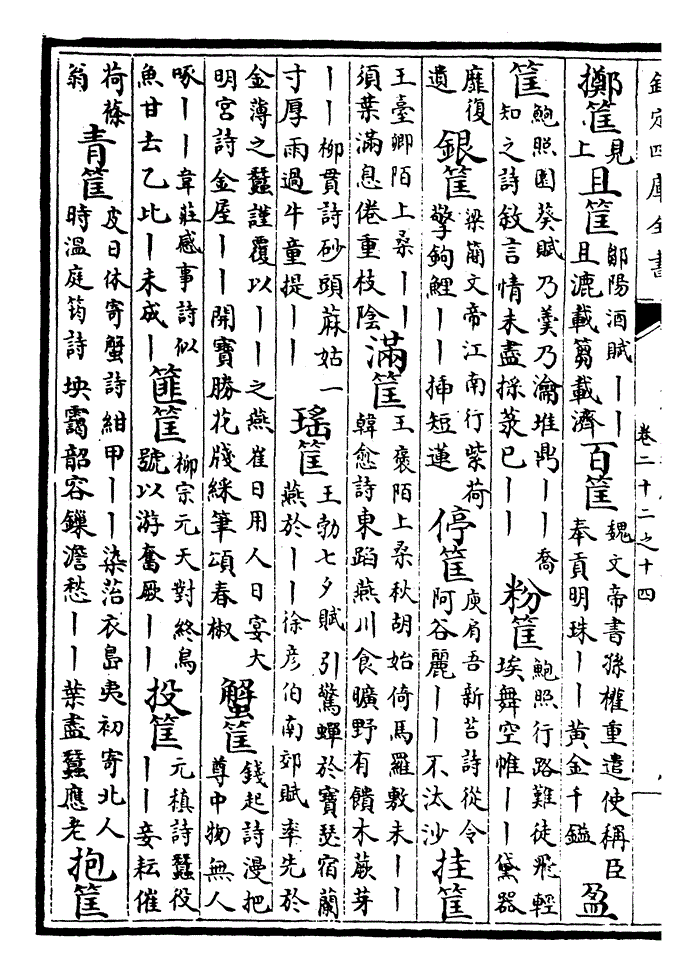 欽定四庫全書
卷二十二之十四
擲筐見上且筐鄒陽酒賦——且漉載篘載濟百筐魏文帝書孫權重遣使稱臣奉貢明珠——黃金千鎰盈
筐鮑照園葵賦乃羹乃瀹堆鼎——喬知之詩敘言情未盡採菉已——粉筐鮑照行路難徒飛輕埃舞空帷——黛器
靡復遺銀筐梁簡文帝江南行紫荷擎鉤鯉——插短蓮停筐庾肩吾新苔詩從令阿谷麗——不汰沙挂筐
王臺卿陌上桑——須葉滿息倦重枝陰滿筐王褒陌上桑秋胡始倚馬羅敷未——韓愈詩東蹈燕川食曠野有饋木蕨芽
——柳貫詩砂頭蔴姑一寸厚雨過牛童提——瑤筐王勃七夕賦引鴛蟬於寶瑟宿蘭燕於——徐彥伯南郊賦率先於
金薄之蠶謹覆以——之燕崔日用人日宴大明宮詩金屋——開寶勝花牋綵筆頌春椒蟹筐錢起詩漫把尊中物無人
啄——韋莊感事詩似魚甘去乙比—未成—篚筐柳宗元天對終鳥號以游奮厥——投筐元稹詩蠶役——妾耘催
荷蓧翁青筐皮日休寄蟹詩紺甲——染菭衣島夷初寄北人時溫庭筠詩坱靄韶容鏁澹愁——葉盡蠶應老抱筐